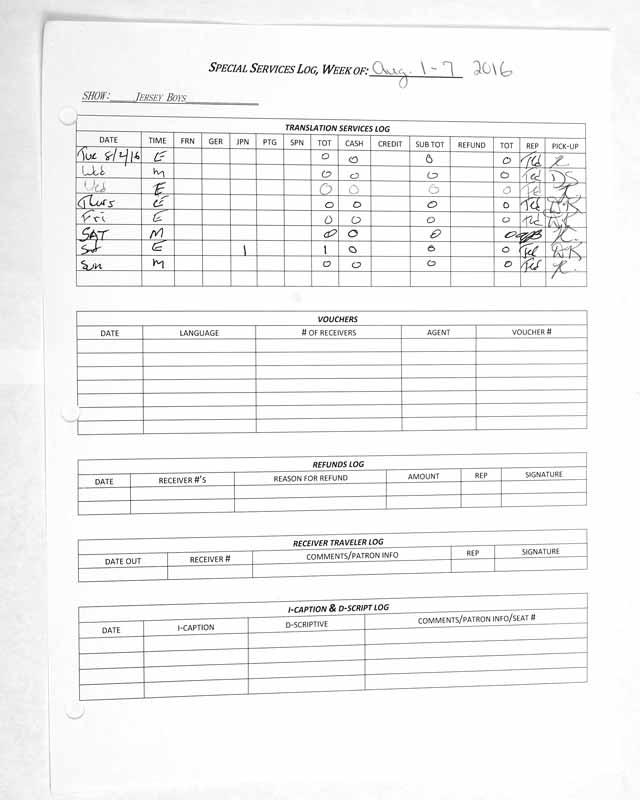 SPECIAL SERVICES LOG, WEEK OF: Aug. 1-7 2016
SHOW: JERSEY BOYS
TRANSLATION SERVICES LOG
DATE TIME FRN GER JPN PTG SPN TOT CASH CREDIT SUB TOT REFUND TOT REP PICK-UP
Tue 8/2/16 E 0 0 0 0 Ted K.
Wed M 0 0 0 0 Ted DS
Wed E 0 0 0 0 Ted K.
Thurs E 0 0 0 0 Ted D.K
Fri E 0 0 0 0 Ted D.K
SAT M 0 0 0 0 K.
Sat E 1 1 0 0 0 Ted D.K
Sun M 0 0 0 0 Ted K.
VOUCHERS
DATE LANGUAGE # OF RECEIVERS AGENT VOUCHER #
REFUNDS LOG
DATE RECEIVER #'S REASON FOR REFUND AMOUNT REP SIGNATURE
RECEIVER TRAVELER LOG
DATE OUT RECEIVER # COMMENTS/PATRON INFO REP SIGNATURE
I-CAPTION & D-SCRIPT LOG
DATE I-CAPTION D-SCRIPTIVE COMMENTS/PATRON INFO/SEAT #